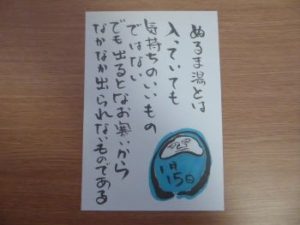 ぬるま湯とは
入っていても
気持ちのいいもの
ではない
でも出るとなお寒いから
なかなか出られないものである
1月
15日